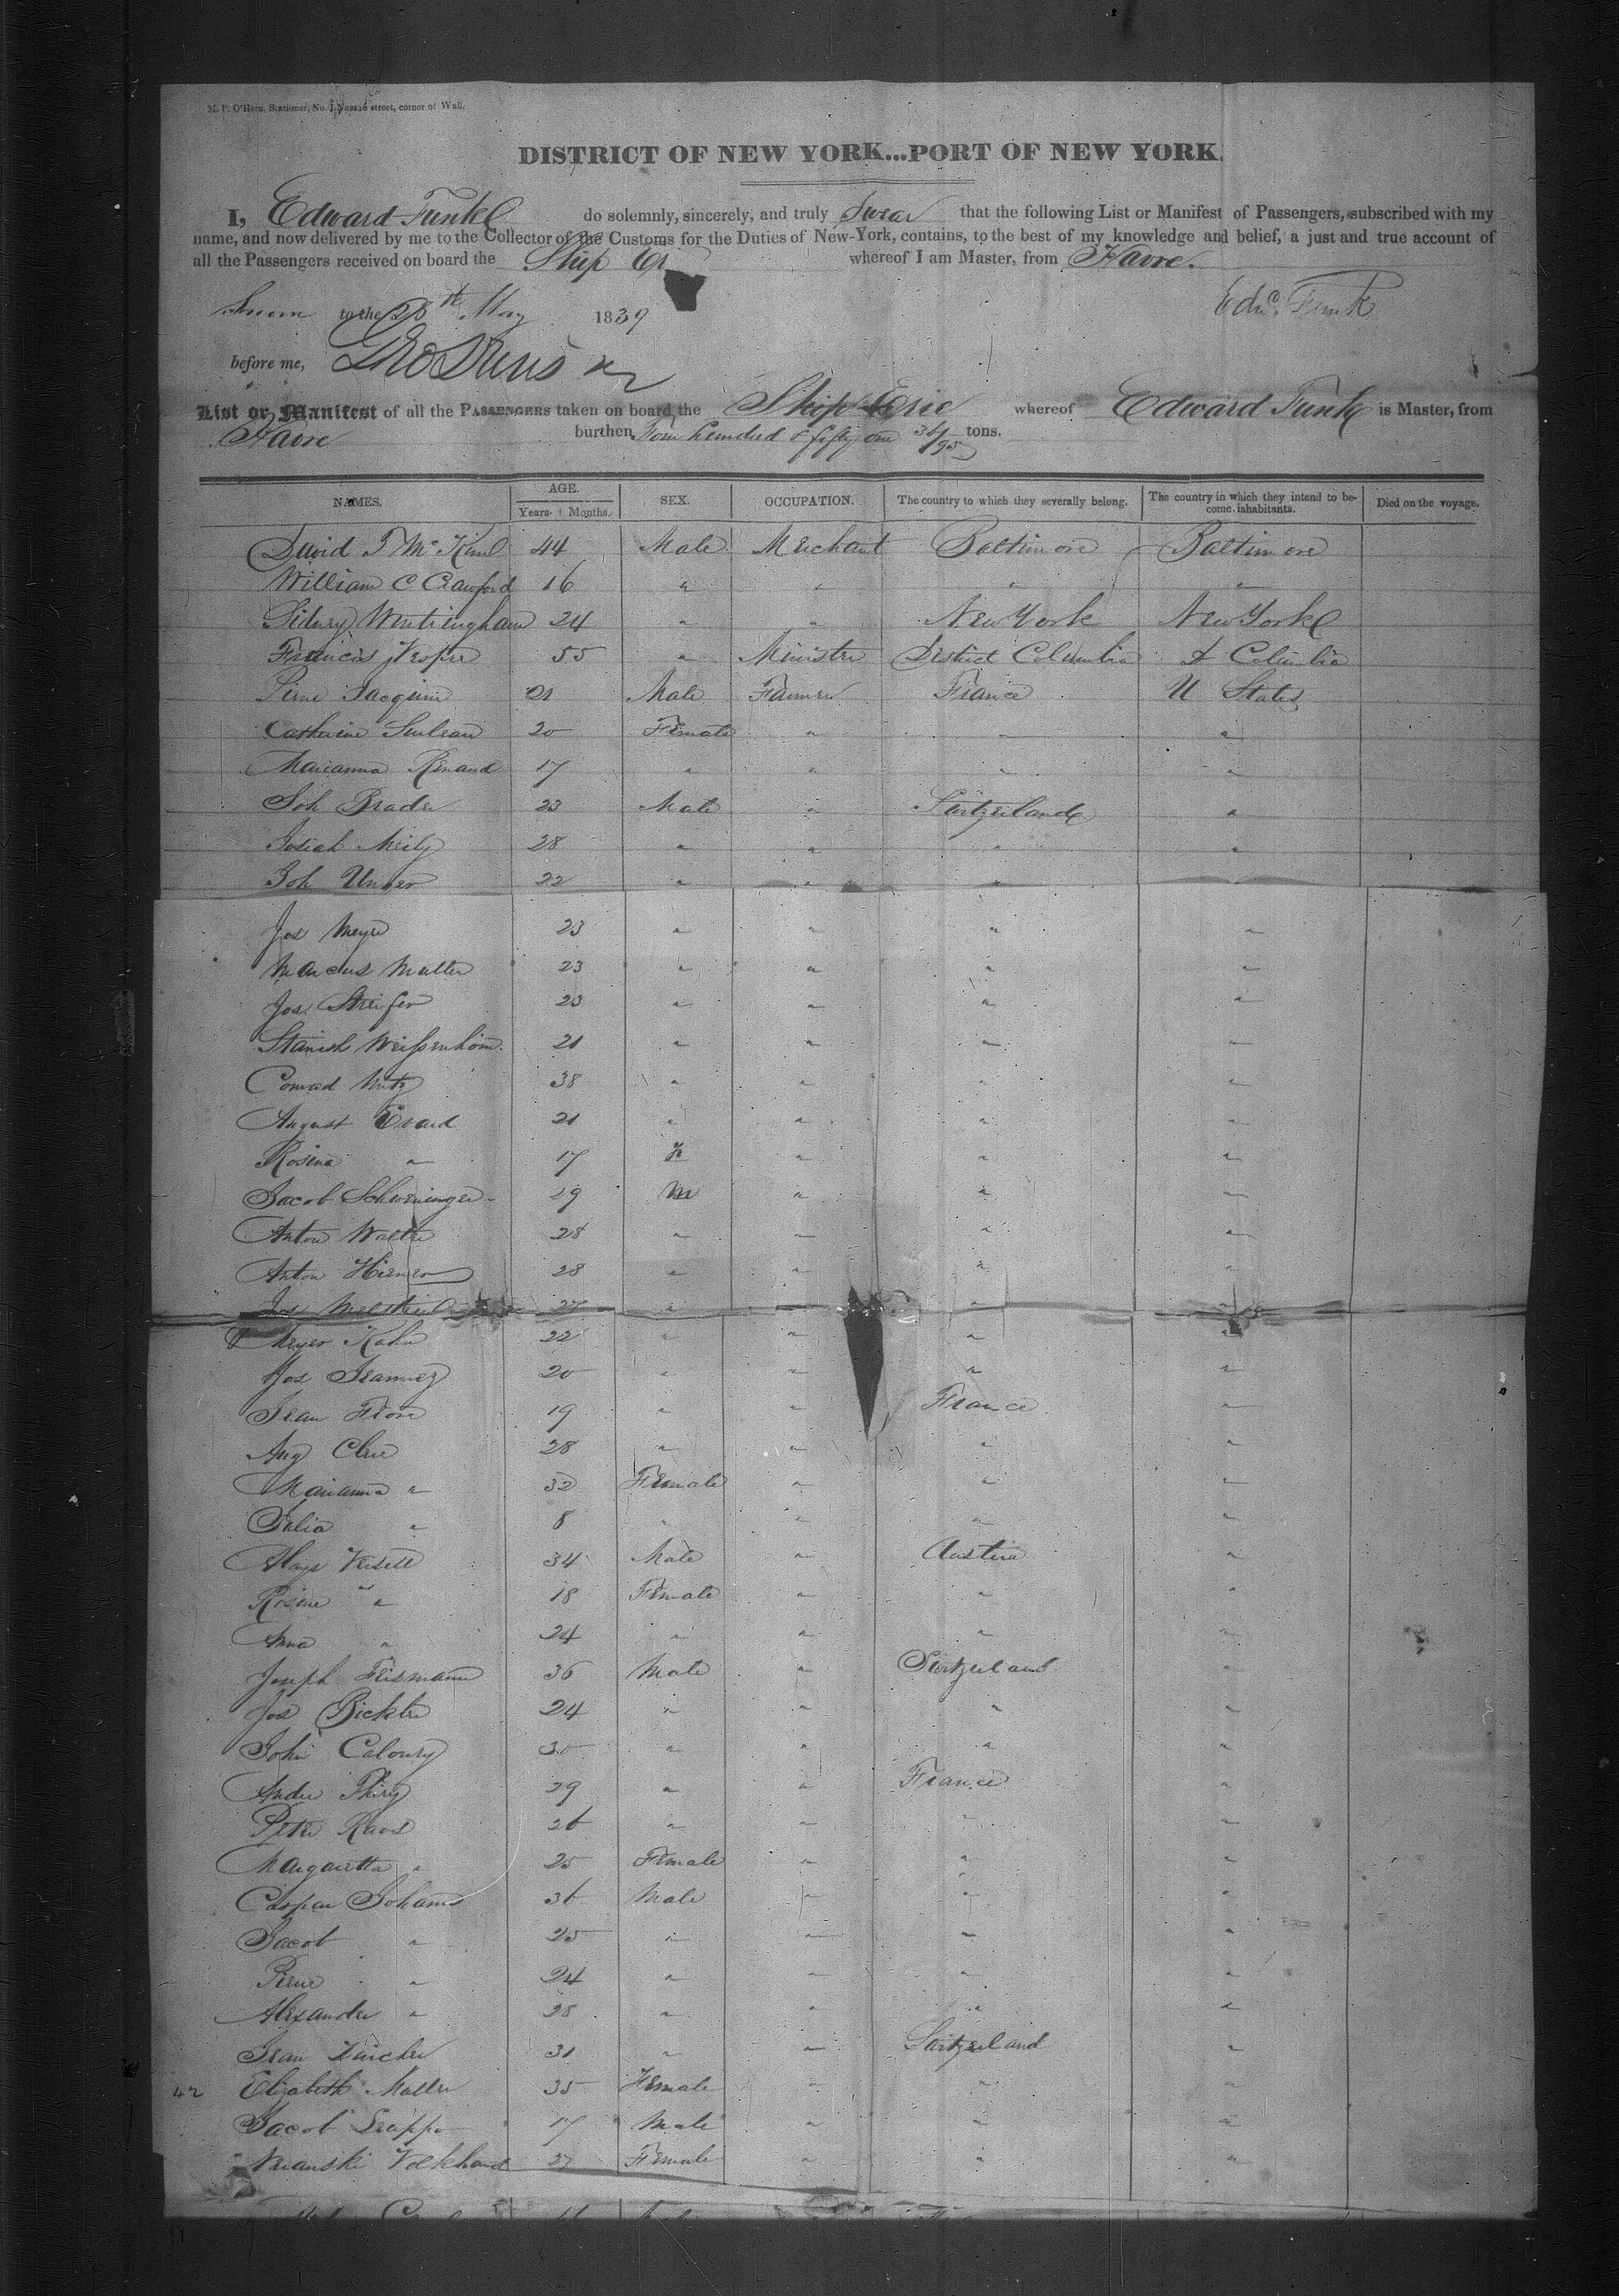 M. P. O'Hara, Stationer, No. 1, Nassau street, corner of Wall.
DISTRICT OF NEW YORK...PORT OF NEW YORK.
I, Edward Funk do solemnly, sincerely, and truly Swear that the following List or Manifest of Passengers, subscribed with my
name, and now delivered by me to the Collector of the Customs for the Duties of New-York, contains, to the best of my knowledge and belief, a just and true account of
all the Passengers received on board the Ship whereof I am Master, from Havre.
Sworn to the 28th May 1839 Edw. Funk
before me,
List or Manifest of all the PASSENGERS taken on board the Ship Erie whereof Edward Funk is Master, from
Havre burthen Four hundred & fifty one 34/95 tons.
NAMES. AGE. Years. Months. SEX. OCCUPATION. The country to which they severally belong. The country in which they intend to become inhabitants. Died on the voyage.
David T McKim 44 Male Merchant Baltimore Baltimore
William C Crawford 16 " " " "
Sidney Wintringham 24 " " New York New York
Francis 55 " Minister District Columbia D Columbia
Pierre Jacquin 21 Male Farmer France U States
Catherine 20 Female " " "
Marianna Renaud 17 " " " "
Joh Brader 23 Male " Switzerland "
Josiah Meily 28 " " " "
Joh Unger 22 " " " "
Jos Meyer 23 " " " "
Marcus Muller 23 " " " "
Jos Streifer 23 " " " "
Weissenhorn 21 " " " "
Conrad Mutz 38 " " " "
August Erard 21 " " " "
Rosina " 17 F " " "
Jacob Schweninger 29 M " " "
Anton Walter 28 " " " "
Anton 28 " " " "
Jos 27 " " " "
Meyer Kahn 22 " " " "
Jos 20 " " " "
Jean 19 " " France "
Aug 28 " " " "
Marianna " 32 Female " " "
Julia " 8 " " " "
34 Male " Austria "
Rosine " 18 Female " " "
Anna " 24 " " " "
Joseph 36 Male " Switzerland "
Jos Bickler 24 " " " "
John 30 " " " "
Andre Thiry 29 " " France "
Peter 26 " " " "
Margaretta " 25 Female " " "
Caspar Johanns 36 Male " " "
Jacob " 25 " " " "
Pierre " 24 " " " "
Alexander " 28 " " " "
Jean Zuricher 31 " " Switzerland "
42 Elizabeth Muller 35 Female " " "
Jacob 17 Male " " "
Volkhard 27 Female " " "